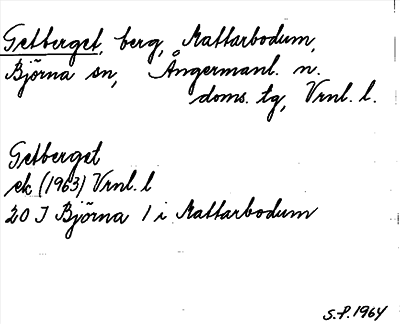 Getberget, berg, Mattarbodum,
Björna sn, Ångermanl. n.
doms. tg, Vrnl. l.
Getberget
ek (1963) Vrnl. l
20 I Björna 1 i Mattarbodum
S.P. 1964